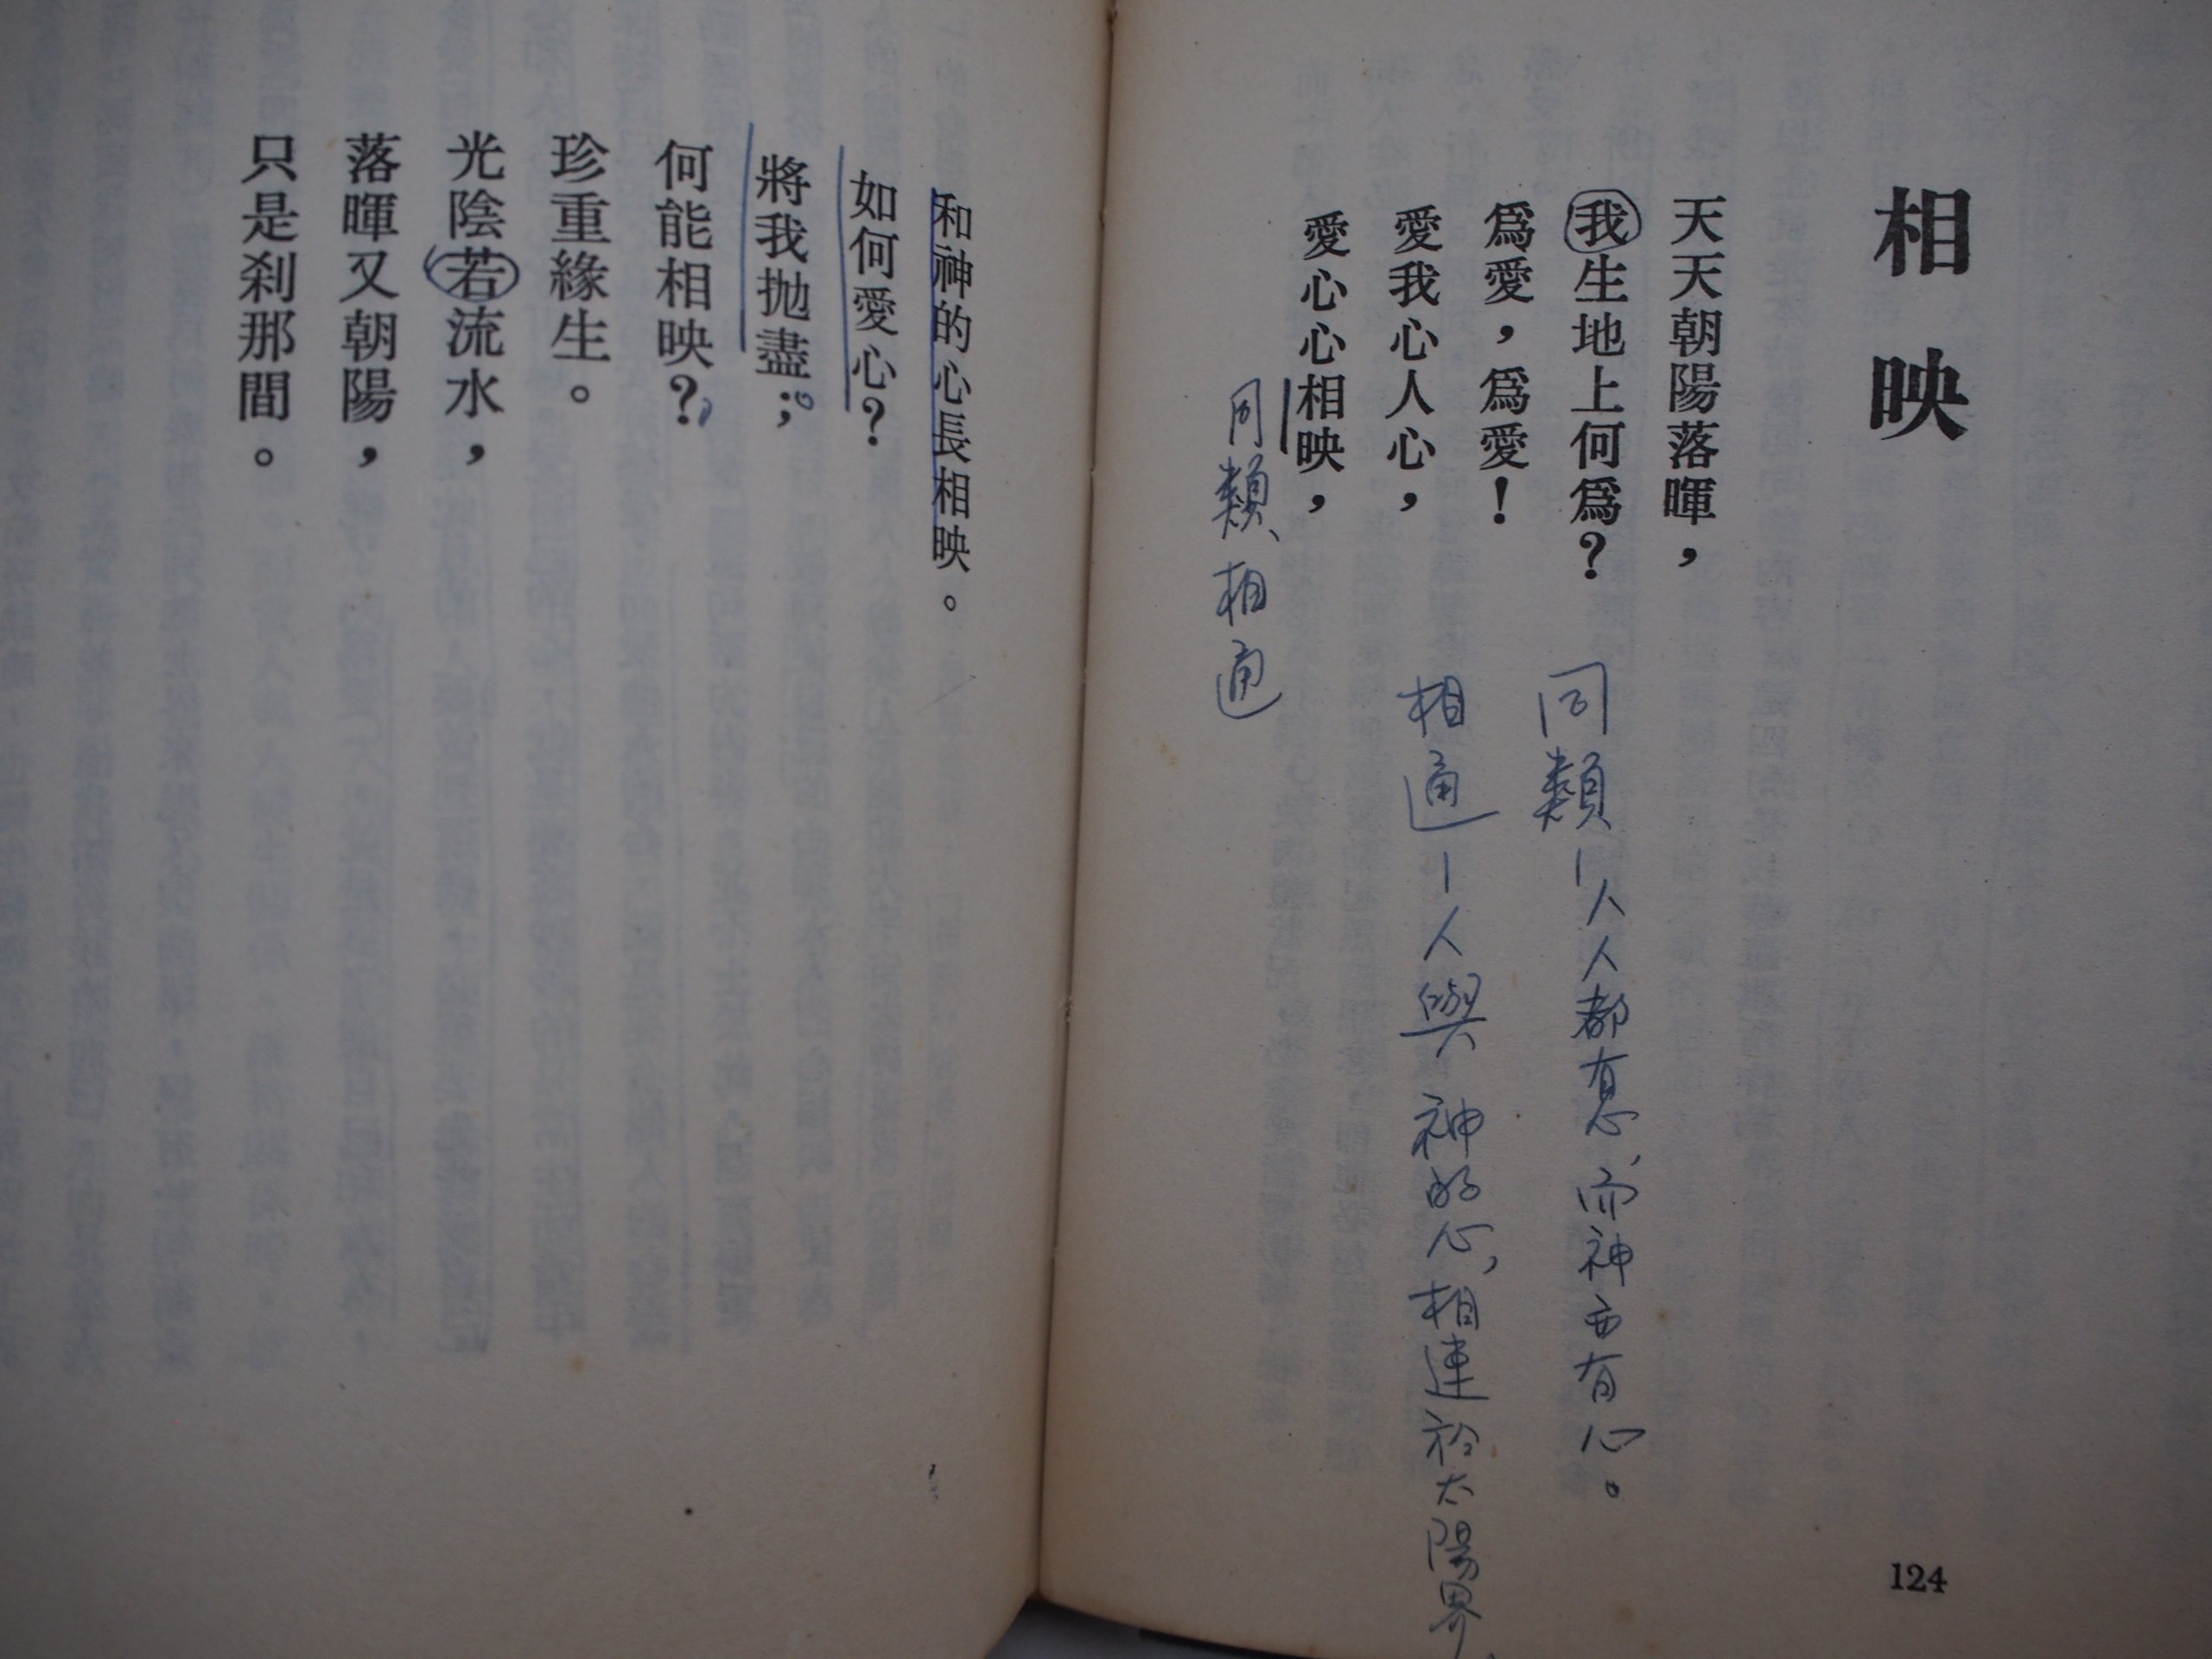 相映
天天朝陽落暉，
我生地上何為？
為愛，為愛！
愛我心人心，
愛心心相映，
同類－人人都有心，而神亦有心。
相通－人與神的心，相連於太陽界
同類、相通
124
和神的心長相映。
如何愛心？
將我拋盡；
何能相映？
珍重緣生。
光陰若流水，
落暉又朝陽，
只是剎那間。